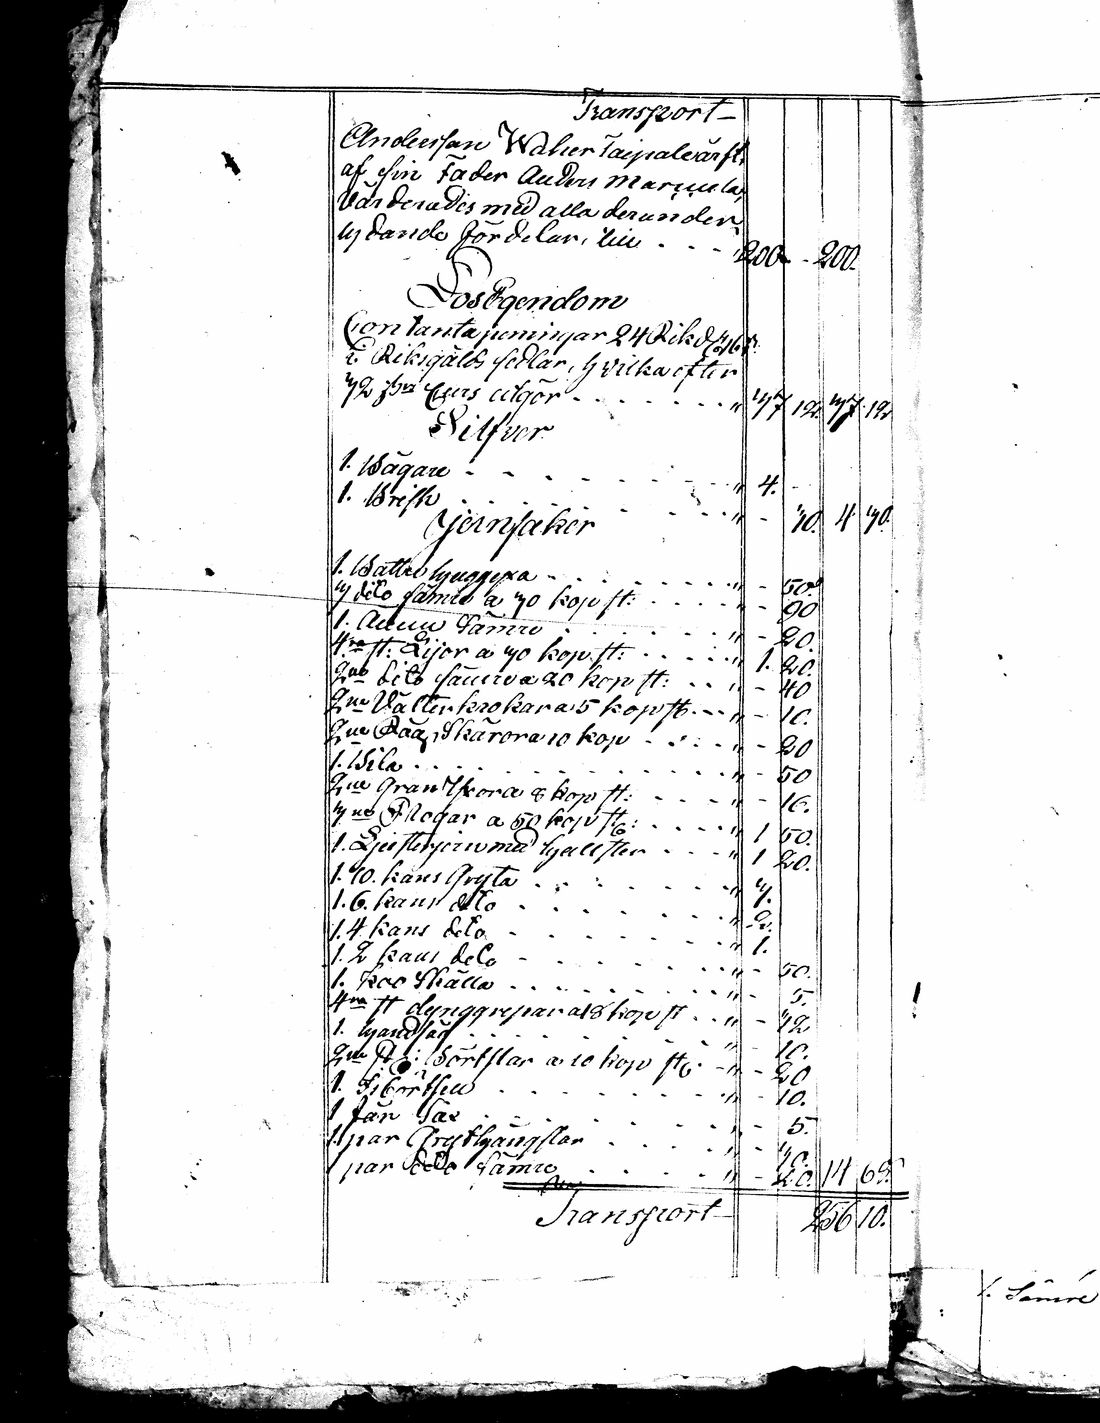 Transport
Andersson Waher Taipale ärft,
af sin Fader Anders Marttila,
Värderades med alla derunder
lydande fördelar, till - - - " 200 - 200.
Lös Egendom
Contanta peningar 24 Rikd 16 s.
i Riksgälds sedlar, hvilka efter
Curs utgör - - - - " 37 12. 37 12.
Silfver
1. Bägare - - - - " 4.
1. Brisk - - - - " - 30. 4 30.
Jernsaker
1. Bättre huggyxa - - - - " - 50.
3 dito sämre a 30 kop st: - - - " - 90
1. Annu Sämre - - - - " - 20.
4ra st: Lijor a 30 kop. st: - - - " 1. 20.
2ne dito sämre a 20 kop st: - - " - 40
2ne Välter krokar a 5 kop st - - " - 10.
2ne Råg Skäror a 10 kop - - - " - 20
1. Bila - - - - " - 50
2ne Gran Yxor a 8 kop st: - - - " - 16.
3ne Plogar a 50 kop st: - - - " 1 50.
1. Ljusterjern med hallster - - - " 1 20.
1. 10. kans Gryta - - - - " 3.
1. 6. kans dito - - - - " 2.
1. 4 kans dito - - - - " 1.
1. 2 kans dito - - - - " - 50.
1. Koo Skälla - - - - " - 5.
4ra st dynggrepar a 18 kop st - - " - 72
1. handsåg - - - - " - 10.
2ne st: Börstlar a 10 kop st - - " - 20
1. - - - - " - 10.
1 Jär Sax - - - - " - 5.
1. par Grythängslar - - - - " - 30.
par dito Sämre - - - - " - 20. 14 68.
Transport 256 10.
1. Sämre